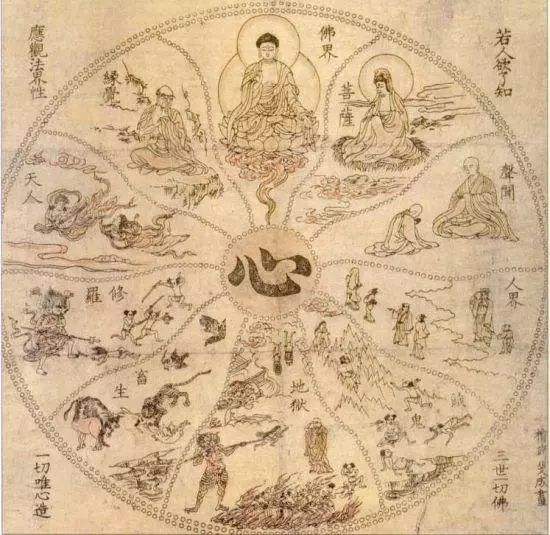 若人欲了知
三世一切佛
應觀法界性
一切唯心造
佛界
菩薩
緣覺
聲聞
天人
人界
修羅
畜生
餓鬼
地獄
心